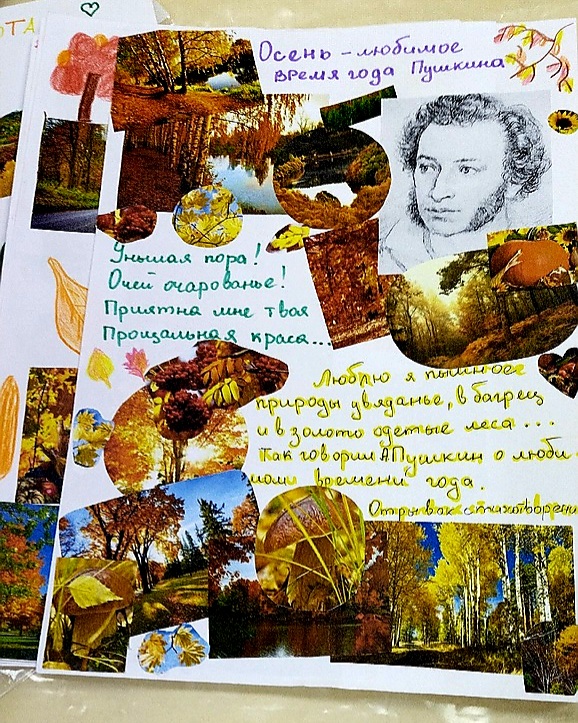 Осень - любимое
время года Пушкина
Унылая пора!
Очей очарованье!
Приятна мне твоя
Прощальная краса...
Люблю я пышное
природы увяданье, в багрец
и в золото одетые леса...
Так говорил А.Пушкин о люби-
мом времени года.
Отрывок стихотворени